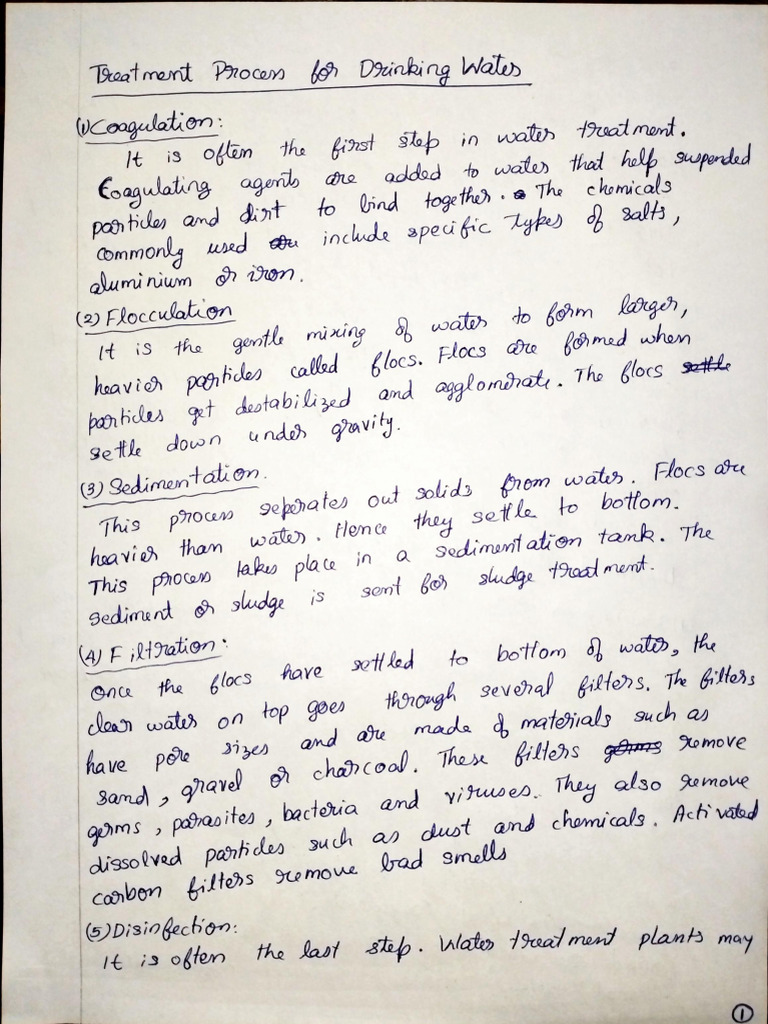 Treatment Process for Drinking Water
(1) Coagulation:
It is often the first step in water treatment.
Coagulating agents are added to water that help suspended
particles and dirt to bind together. The chemicals
commonly used include specific types of salts,
aluminium or iron.
(2) Flocculation
It is the gentle mixing of water to form larger,
heavier particles called flocs. Flocs are formed when
particles get destabilized and agglomerate. The flocs settle
settle down under gravity.
(3) Sedimentation.
This process seperates out solids from water. Flocs are
heavier than water. Hence they settle to bottom.
This process takes place in a sedimentation tank. The
sediment or sludge is sent for sludge treatment.
(4) Filtration:
Once the flocs have settled to bottom of water, the
clear water on top goes through several filters. The filters
have pore sizes and are made of materials such as
sand, gravel or charcoal. These filters germs remove
germs, parasites, bacteria and viruses. They also remove
dissolved particles such as dust and chemicals. Activated
carbon filters remove bad smells
(5) Disinfection:
It is often the last step. Water treatment plants may
1